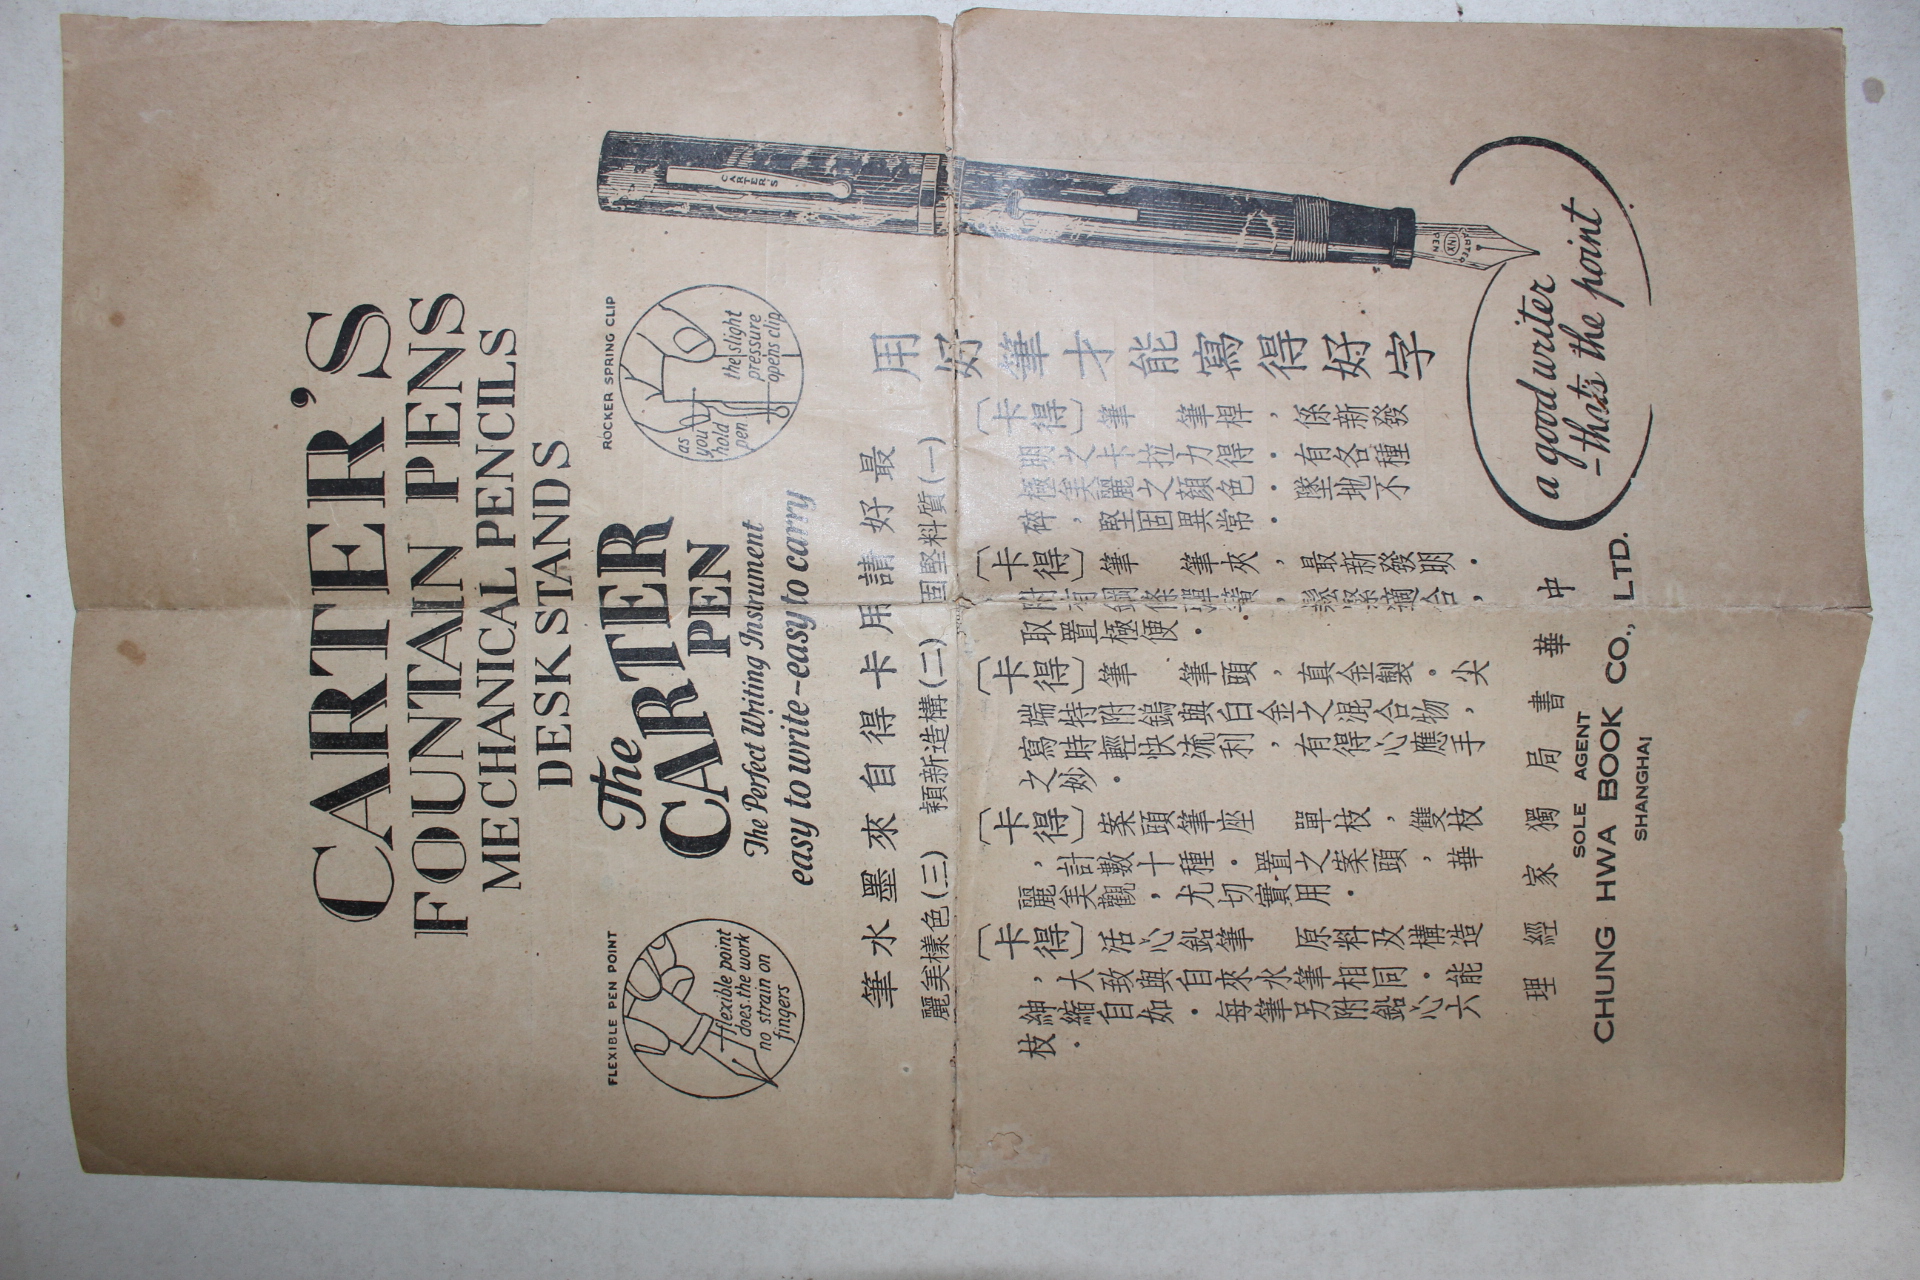 CARTER'S
FOUNTAIN PENS
MECHANICAL PENCILS
DESK STANDS
FLEXIBLE PEN POINT
flexible point
does the work
no strain on
fingers
The
CARTER
PEN
The Perfect Writing Instrument
easy to write-easy to carry
ROCKER SPRING CLIP
as
you
hold
pen
the slight
pressure
opens clip
CARTER'S
CARTER
INX
PEN
最好請用卡得自來墨水筆
(一)質料堅固 (二)構造新穎 (三)色樣美麗
用好筆才能寫得好字
〔卡得〕筆 筆桿,係新發
明之卡拉力得.有各種
極美麗之顏色.墜地不
碎,堅固異常.
〔卡得〕筆 筆夾,最新發明.
附有鋼條彈簧,鬆緊適合,
取置極便.
〔卡得〕筆 筆頭,真金製.尖
端特附鎢與白金之混合物,
寫時輕快流利,有得心應手
之妙.
〔卡得〕案頭筆座 單枝,雙枝
,計數十種.置之案頭,華
麗美觀,尤切實用.
〔卡得〕活心鉛筆 原料及構造
,大致與自來水筆相同.能
紳縮自如.每筆另附鉛心六
枝.
a good writer
-thats the point
中華書局獨家經理
SOLE AGENT
CHUNG HWA BOOK CO., LTD.
SHANGHAI